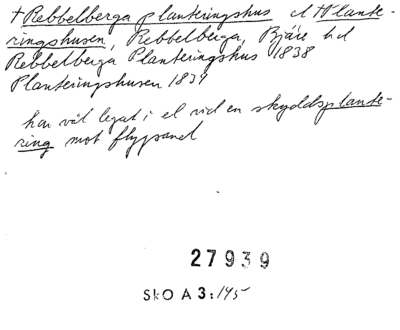 † Rebbelberga planteringshus el †Plante-
ringshusen, Rebbelberga, Bjäre hd
Rebbelberga Planteringshus 1838
Planteringshusen 1834
har väl legat i el vid en skyddsplante-
ring mot flygsand
27939
SkO A3:145